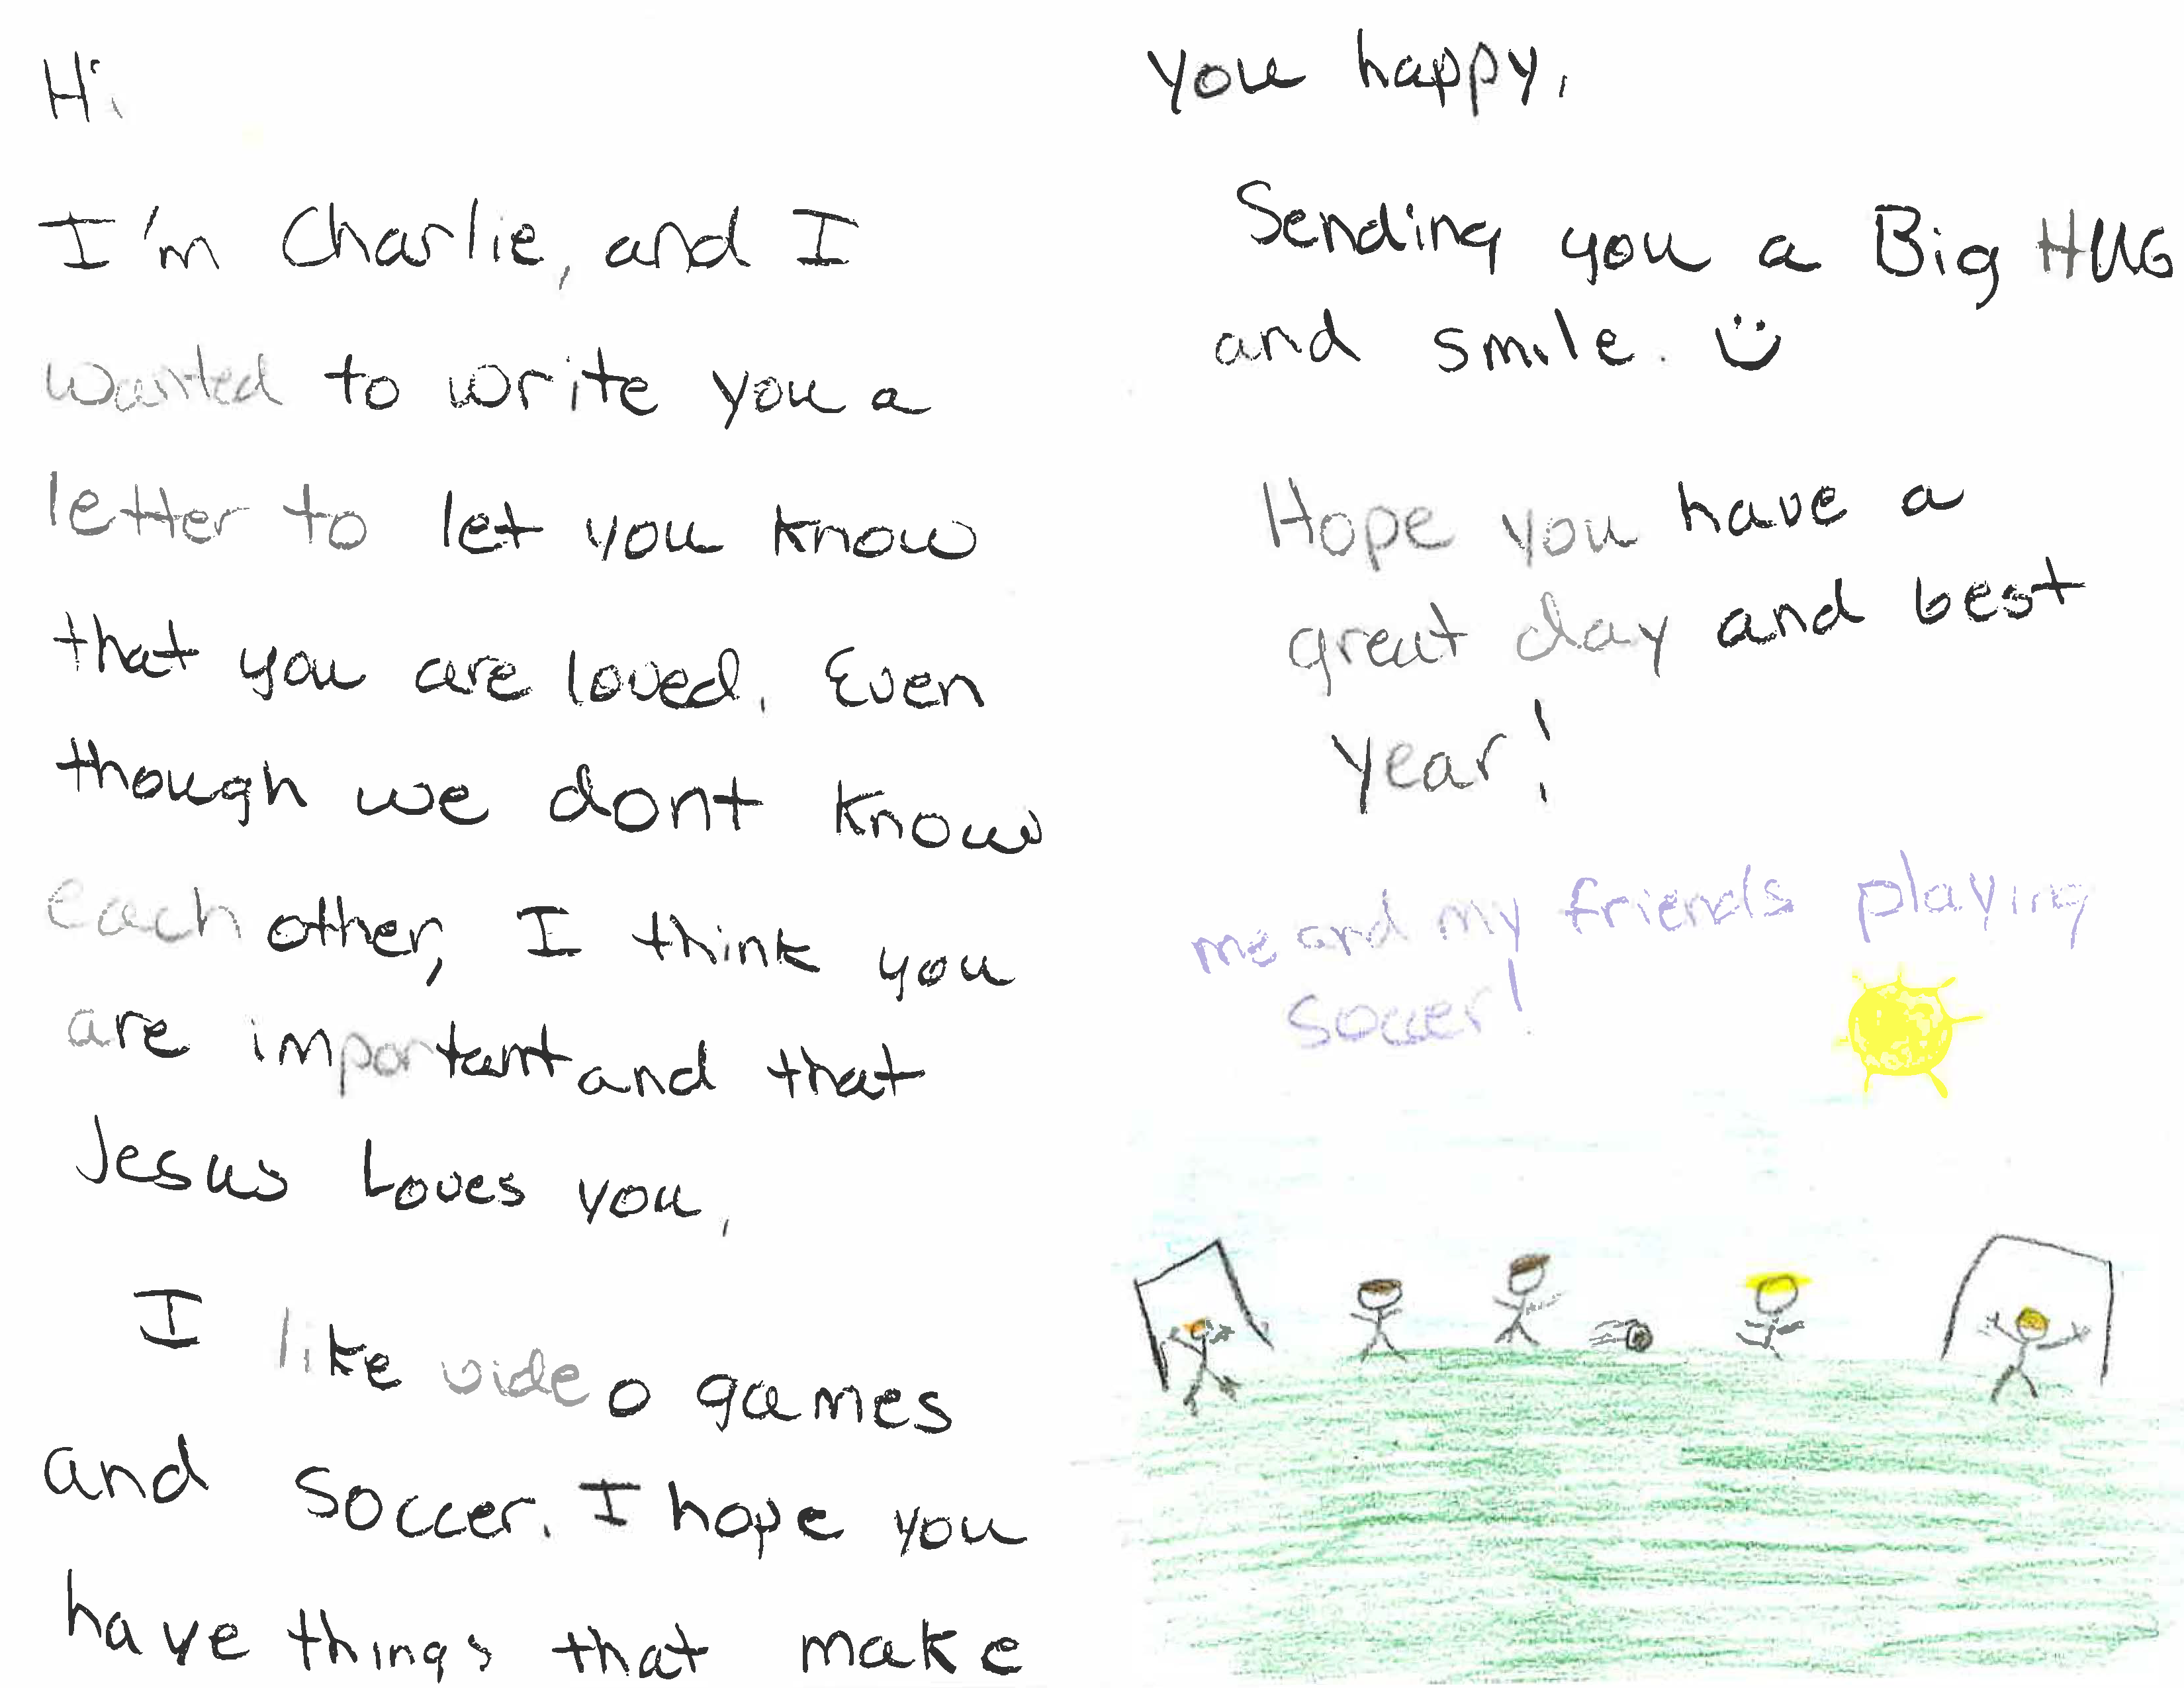 Hi.
I'm Charlie, and I
wanted to write you a
letter to let you know
that you are loved. Even
though we dont know
each other, I think you
are important and that
Jesus Loves you.
I like video games
and soccer. I hope you
have things that make
you happy.
Sending you a Big HUG
and smile. :)
Hope you have a
great day and best
year!
me and my friends playing
soccer!